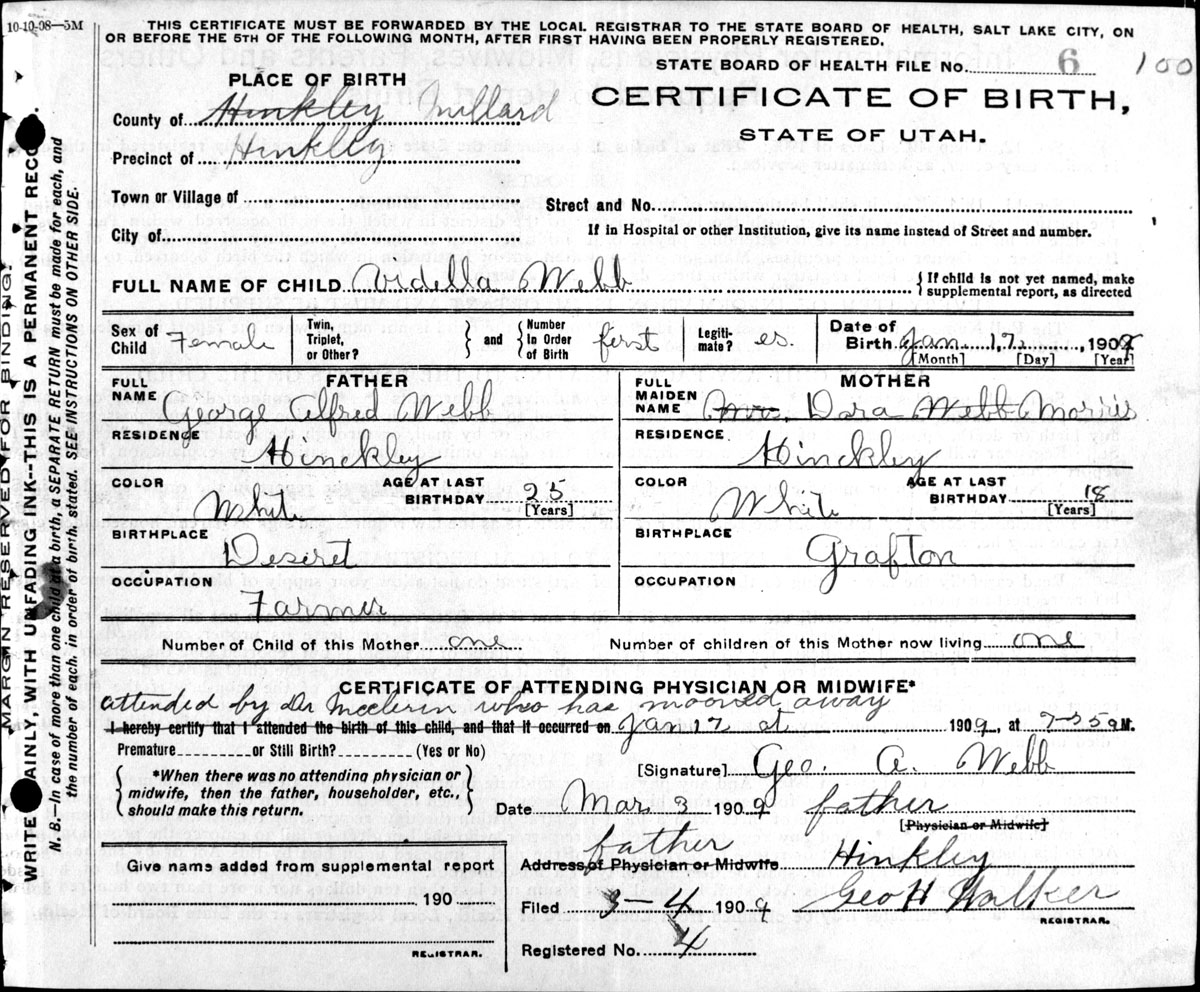 10-10-08—5M
THIS CERTIFICATE MUST BE FORWARDED BY THE LOCAL REGISTRAR TO THE STATE BOARD OF HEALTH, SALT LAKE CITY, ON
OR BEFORE THE 5TH OF THE FOLLOWING MONTH, AFTER FIRST HAVING BEEN PROPERLY REGISTERED.
STATE BOARD OF HEALTH FILE No. 6 100
PLACE OF BIRTH
CERTIFICATE OF BIRTH,
STATE OF UTAH.
County of Hinkley Millard
Precinct of Hinkley
Town or Village of
Street and No.
City of
If in Hospital or other Institution, give its name instead of Street and number.
FULL NAME OF CHILD Ardella Webb
{ If child is not yet named, make
supplemental report, as directed
Sex of Child Female
Twin, Triplet, or Other? } and { Number In Order of Birth first
Legiti-mate? es.
Date of Birth Jan 17, 1909
[Month] [Day] [Year]
FATHER
FULL NAME George Alfred Webb
RESIDENCE Hinckley
COLOR White
AGE AT LAST BIRTHDAY 25 [Years]
BIRTHPLACE Deseret
OCCUPATION Farmer
MOTHER
FULL MAIDEN NAME Mrs. Dora Webb Morris
RESIDENCE Hinckley
COLOR White
AGE AT LAST BIRTHDAY 18 [Years]
BIRTHPLACE Grafton
OCCUPATION
Number of Child of this Mother one
Number of children of this Mother now living one
CERTIFICATE OF ATTENDING PHYSICIAN OR MIDWIFE*
attended by Dr who has mooved away
I hereby certify that I attended the birth of this child, and that it occurred on Jan 17 at 1909, at 7-35 a M.
Premature or Still Birth? (Yes or No)
{ *When there was no attending physician or
midwife, then the father, householder, etc.,
should make this return. }
[Signature] Geo. A. Webb
Date Mar 3 1909 father
[Physician or Midwife]
father
Address of Physician or Midwife Hinkley
Give name added from supplemental report
190
REGISTRAR.
Filed 3-4 1909 Geo H Walker
REGISTRAR.
Registered No. 4
MARGIN RESERVED FOR BINDING.
WRITE PLAINLY, WITH UNFADING INK--THIS IS A PERMANENT RECORD.
N. B.—In case of more than one child at a birth, a SEPARATE RETURN must be made for each, and
the number of each, in order of birth, stated. SEE INSTRUCTIONS ON OTHER SIDE.